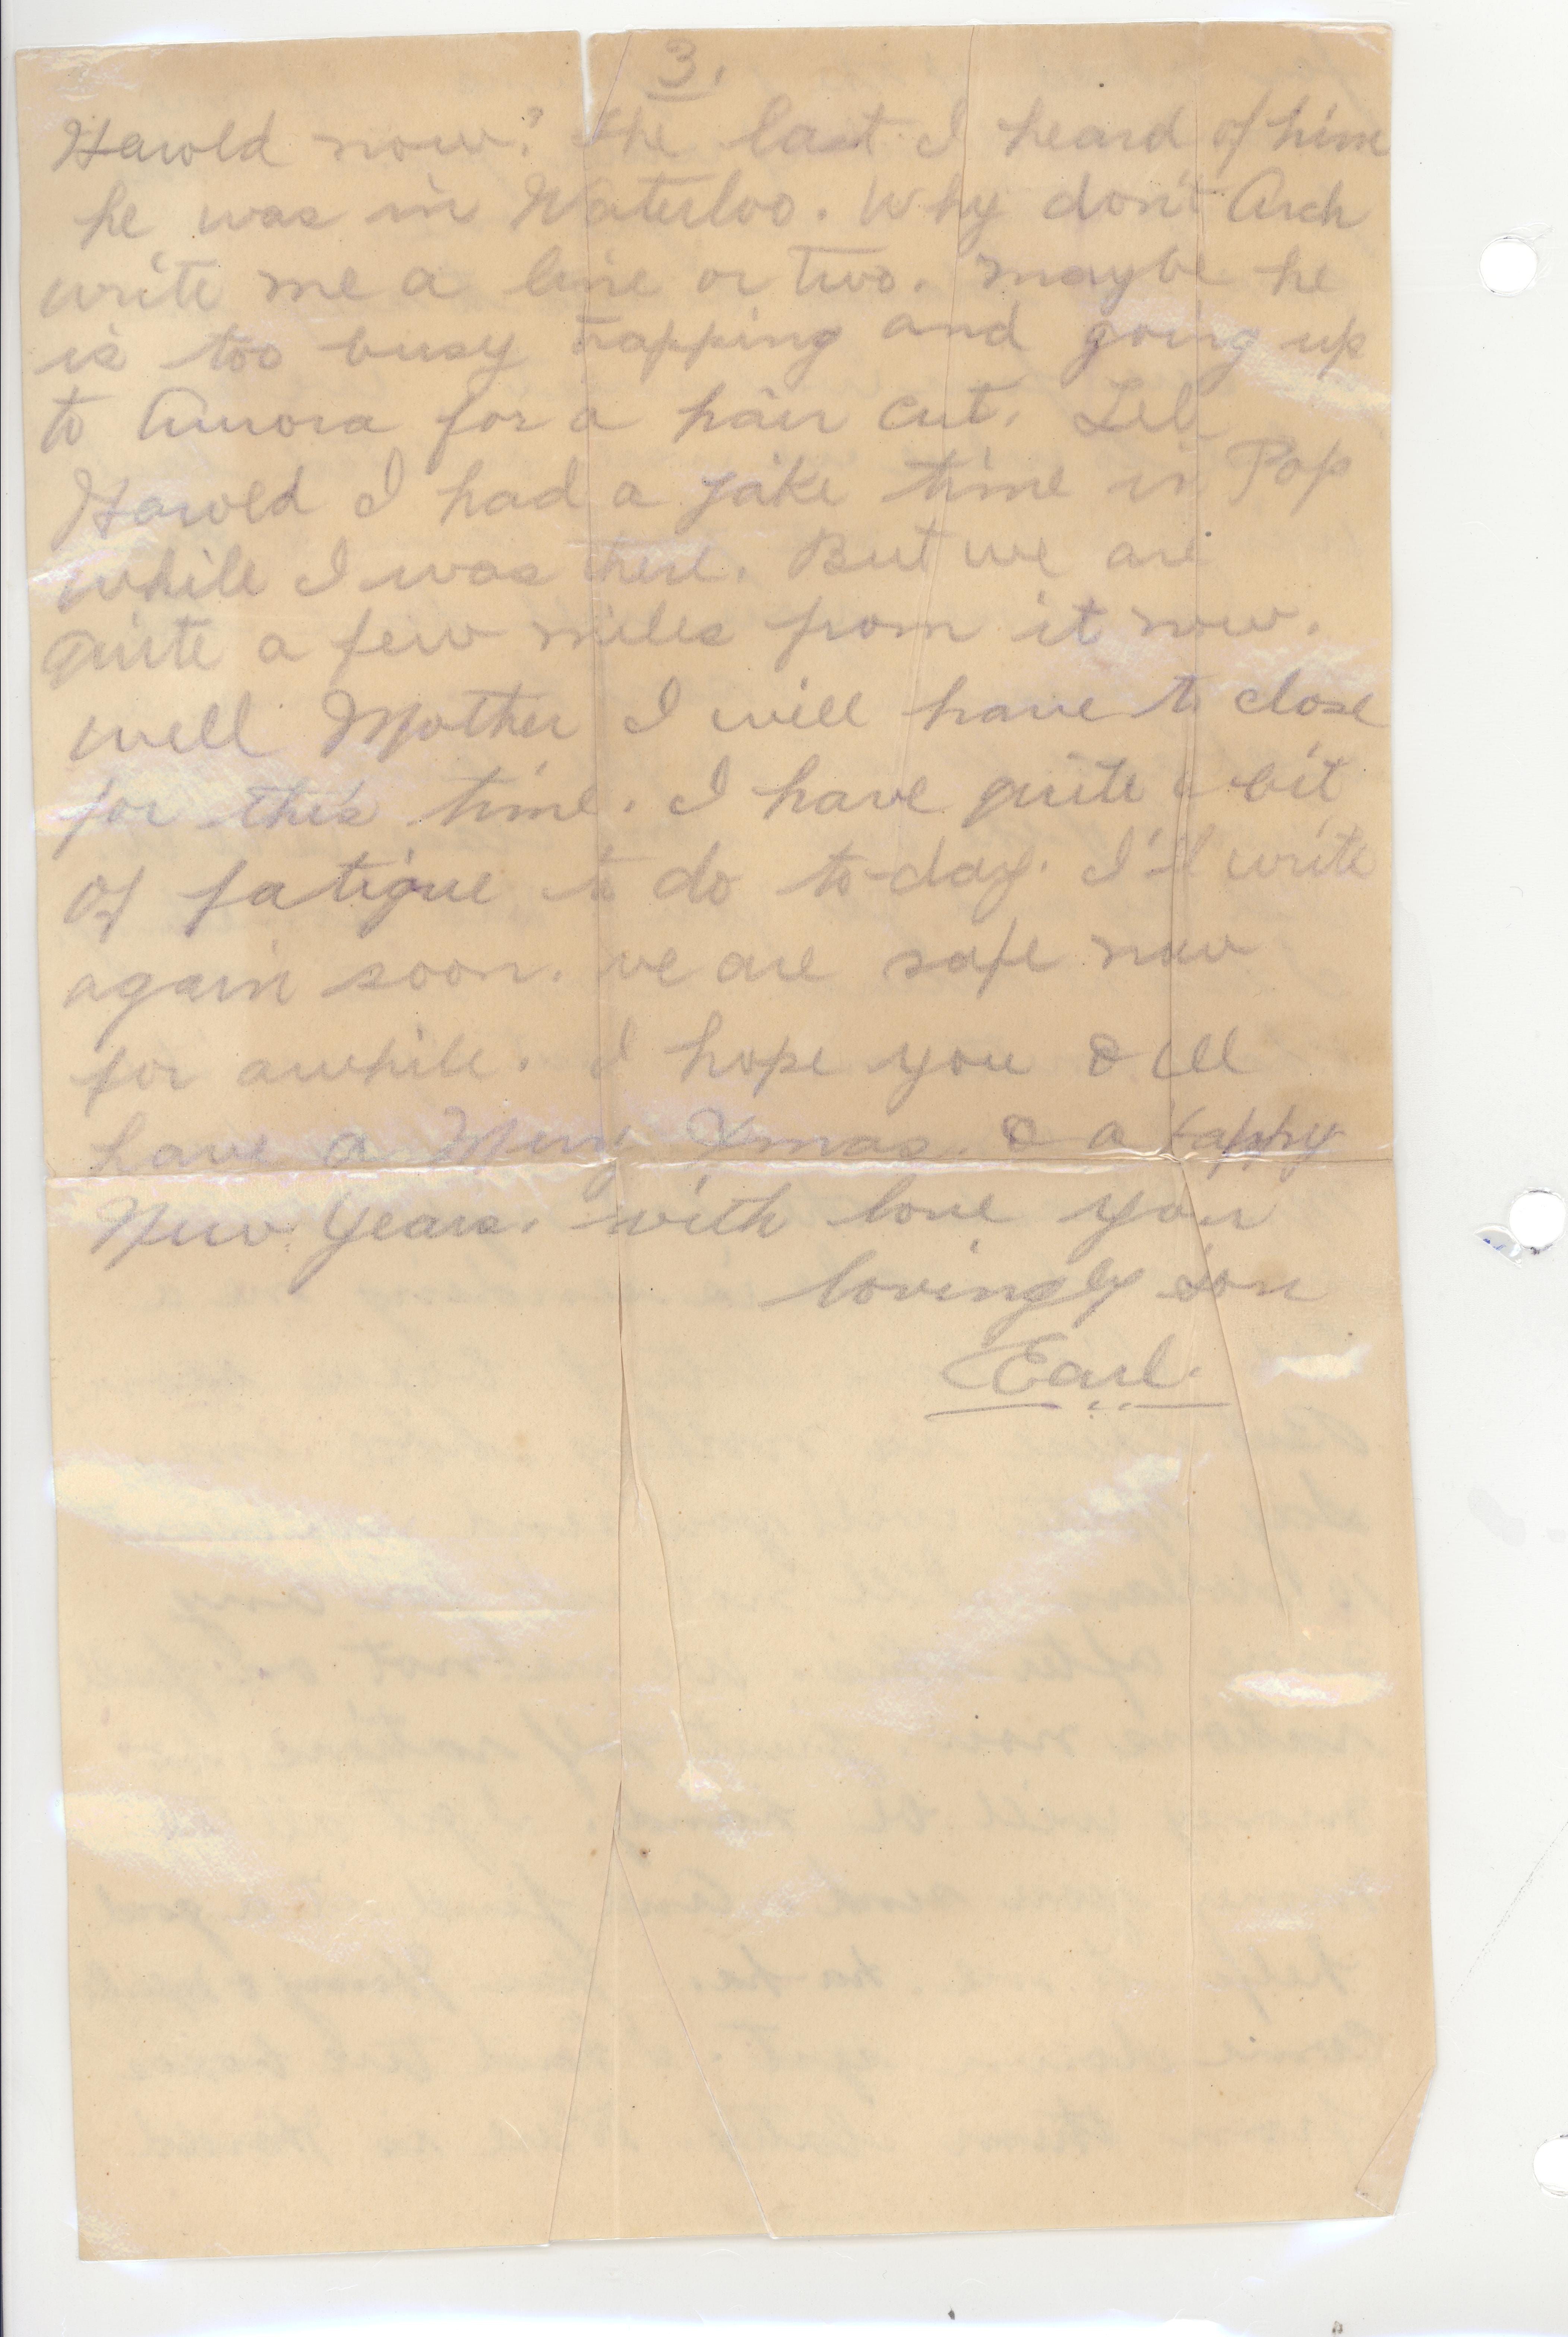 3.
Harold now? the last I heard of him
he was in Waterloo. Why don't Arch
write me a line or two. maybe he
is too busy trapping and going up
to Aurora for a hair cut. Tell
Harold I had a jake time in Pop
while I was there. But we are
quite a few miles from it now.
well Mother I will have to close
for this time. I have quite a bit
of fatigue to do to-day. I'll write
again soon. we are safe now
for awhile. I hope you & all
have a Merry Xmas. & a Happy
New Years. with love your
lovingly son
Earl.